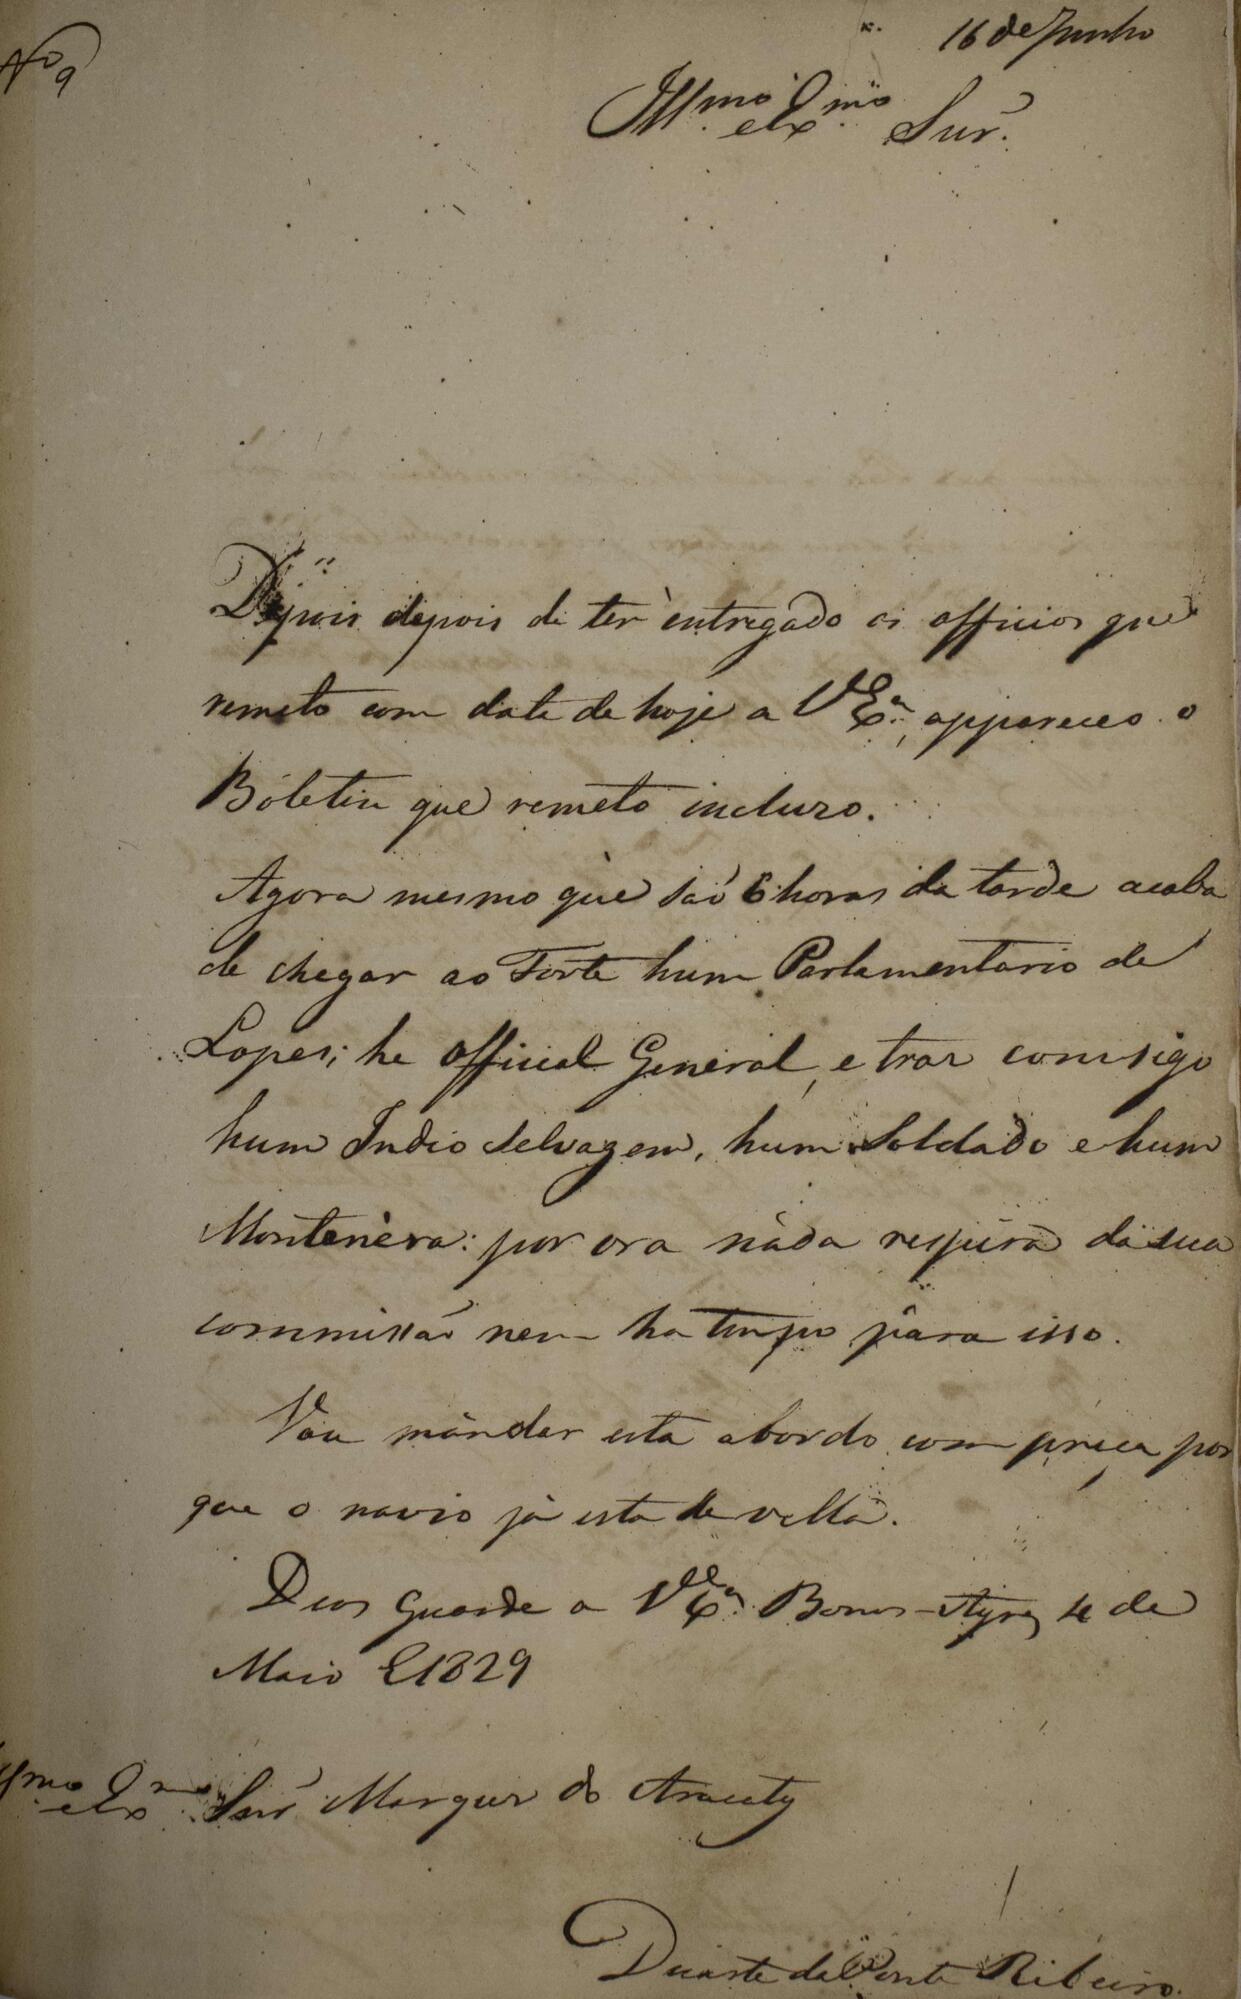 Nº 9
16 de Junho
Illmo. e Exmo. Snr.
Depois depois de ter entregado os officios que
remeto com data de hoje a V.Exa., appareceo o
Boletin que remeto incluzo.
Agora mesmo que saõ 6 horas da tarde acaba
de chegar ao Forte hum Parlamentario de
Lopes; he official General, e traz comsigo
hum Indio Selvagem, hum Soldado e hum
Montenèra: por ora nàda respira da sua
commissaõ nem ha tempo pâra isso.
Vou màndar esta abordo com preça por
que o navio jà esta de vella.
Deos Guarde a V.Exa. Bonos-Ayres 4 de
Maio de 1829
Illmo. e Exmo. Snr. Marquez do Aracaty
Duarte da Ponte Ribeiro.